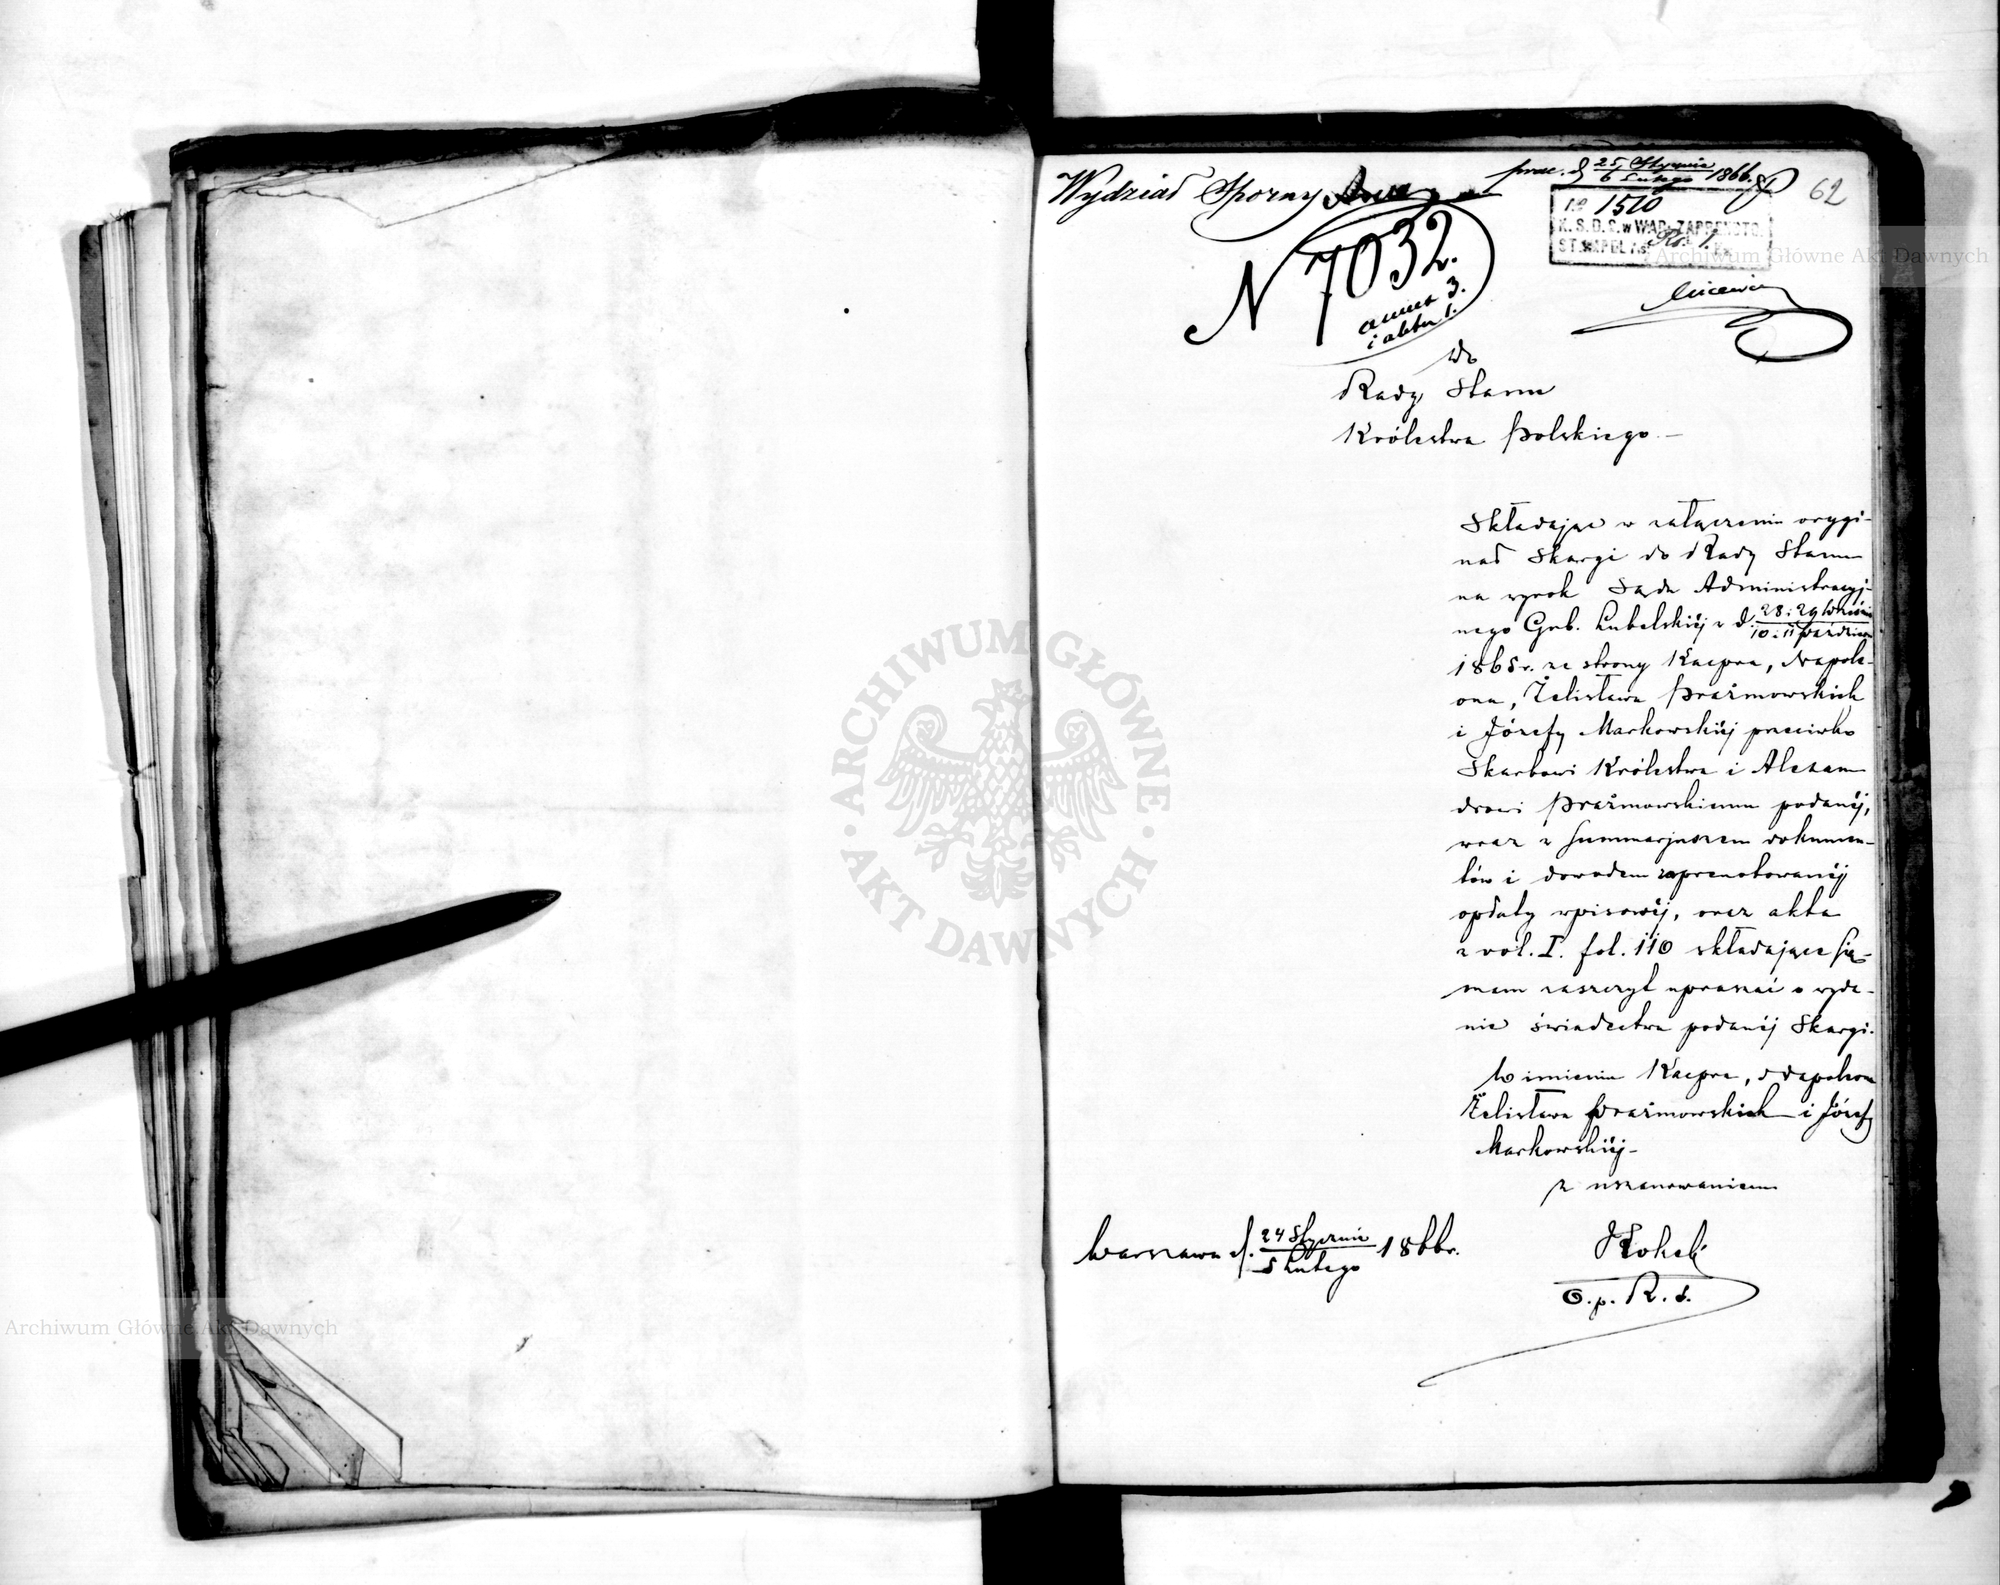 Wydział Sporny
prez. d 25 Stycznia / 6 Lutego 1866 r.
62
No 1510
K. S. D. S. w WAR. ZAPRENOTO.
STEMPEL Rs. 1.
N 7032.
annex 3.
i akta 1.
Do
Rady Stanu
Królestwa Polskiego
Składając w załączeniu orygi-
nał Skargi do Rady Stanu
na wyrok Sądu Administracyj-
nego Gub. Lubelskiéj z d. 28. 29 Wrześni / 10. 11 Paździer
1865 r. ze strony Kacpra, Napole-
ona, Żelisława Prażmowskich
i Józefy Markowskiéj przeciwko
Skarbowi Królestwa i Alexan
drowi Prażmowskiemu podanéj,
wraz z Summarjuszem dokumen-
tów i dowodem zaprenotowanéj
opłaty wpisowéj, oraz akta
z vol. I. fol. 110 składające się
mam zaszczyt upraszać o wyda-
nie świadectwa podanéj Skargi.
W imieniu Kacpra, Napoleona
Żelisława Prażmowskich i Józefy
Markowskiéj
z uszanowaniem
Warszawa d. 24 Stycznia / 5 Lutego 1866 r.
O. p. R. S.
ARCHIWUM GŁÓWNE
AKT DAWNYCH
Archiwum Główne Akt Dawnych
Archiwum Główne Akt Dawnych